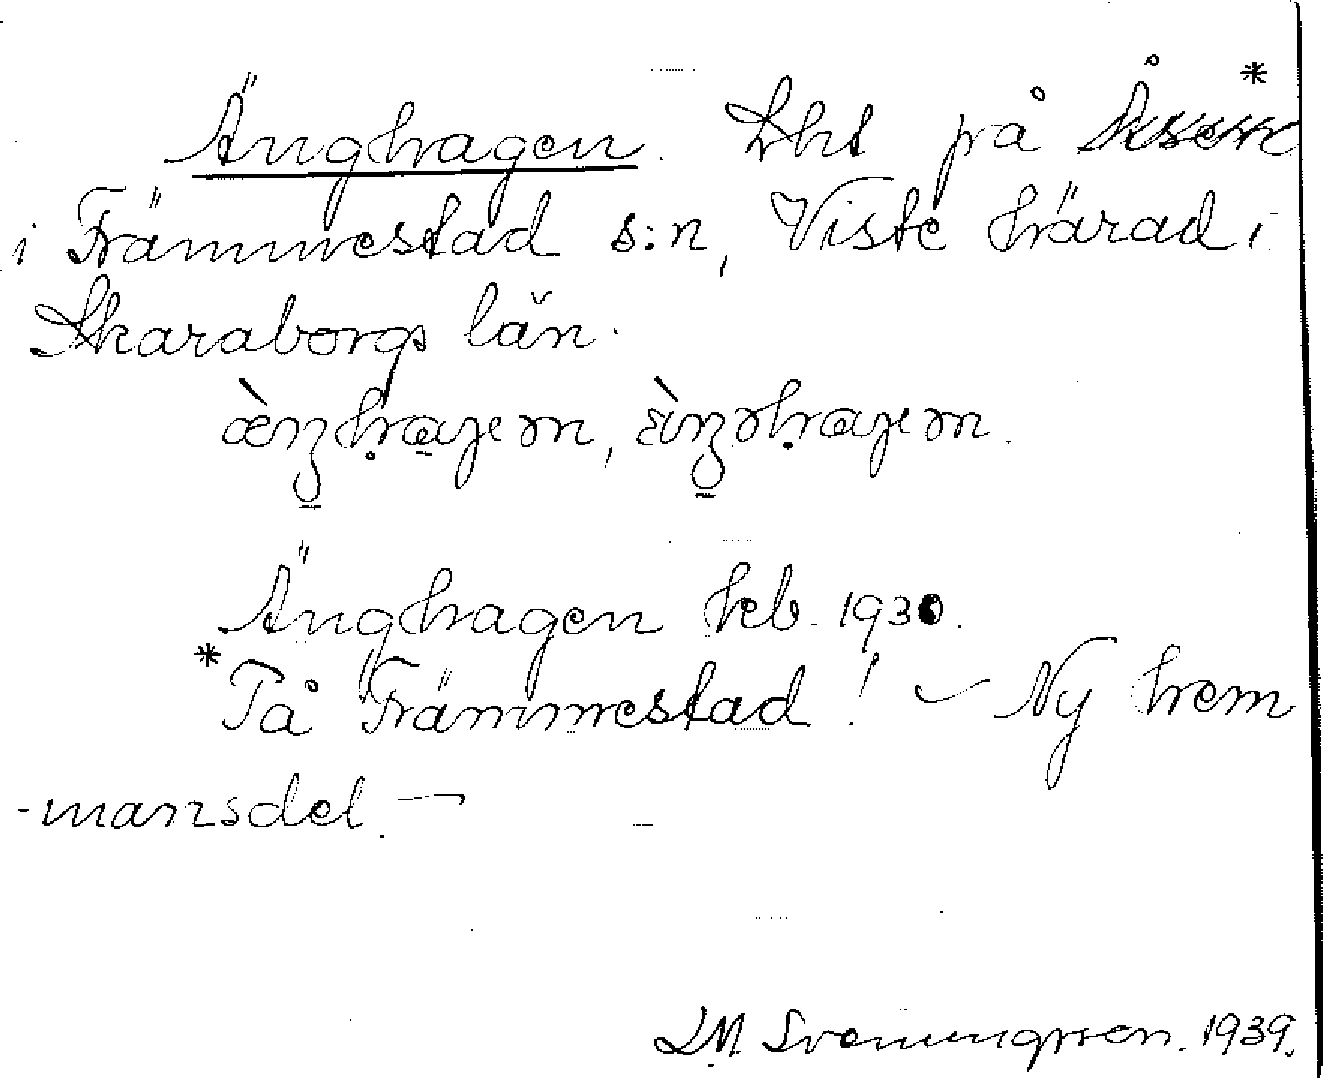 Änghagen. Lht på Åsen*
i Främmestad s:n, Viste härad i
Skaraborgs län.
Änghagen hcb. 1930.
*På Främmestad! – Ny hem
-mansdel. –
LM Svenungsson. 1939.